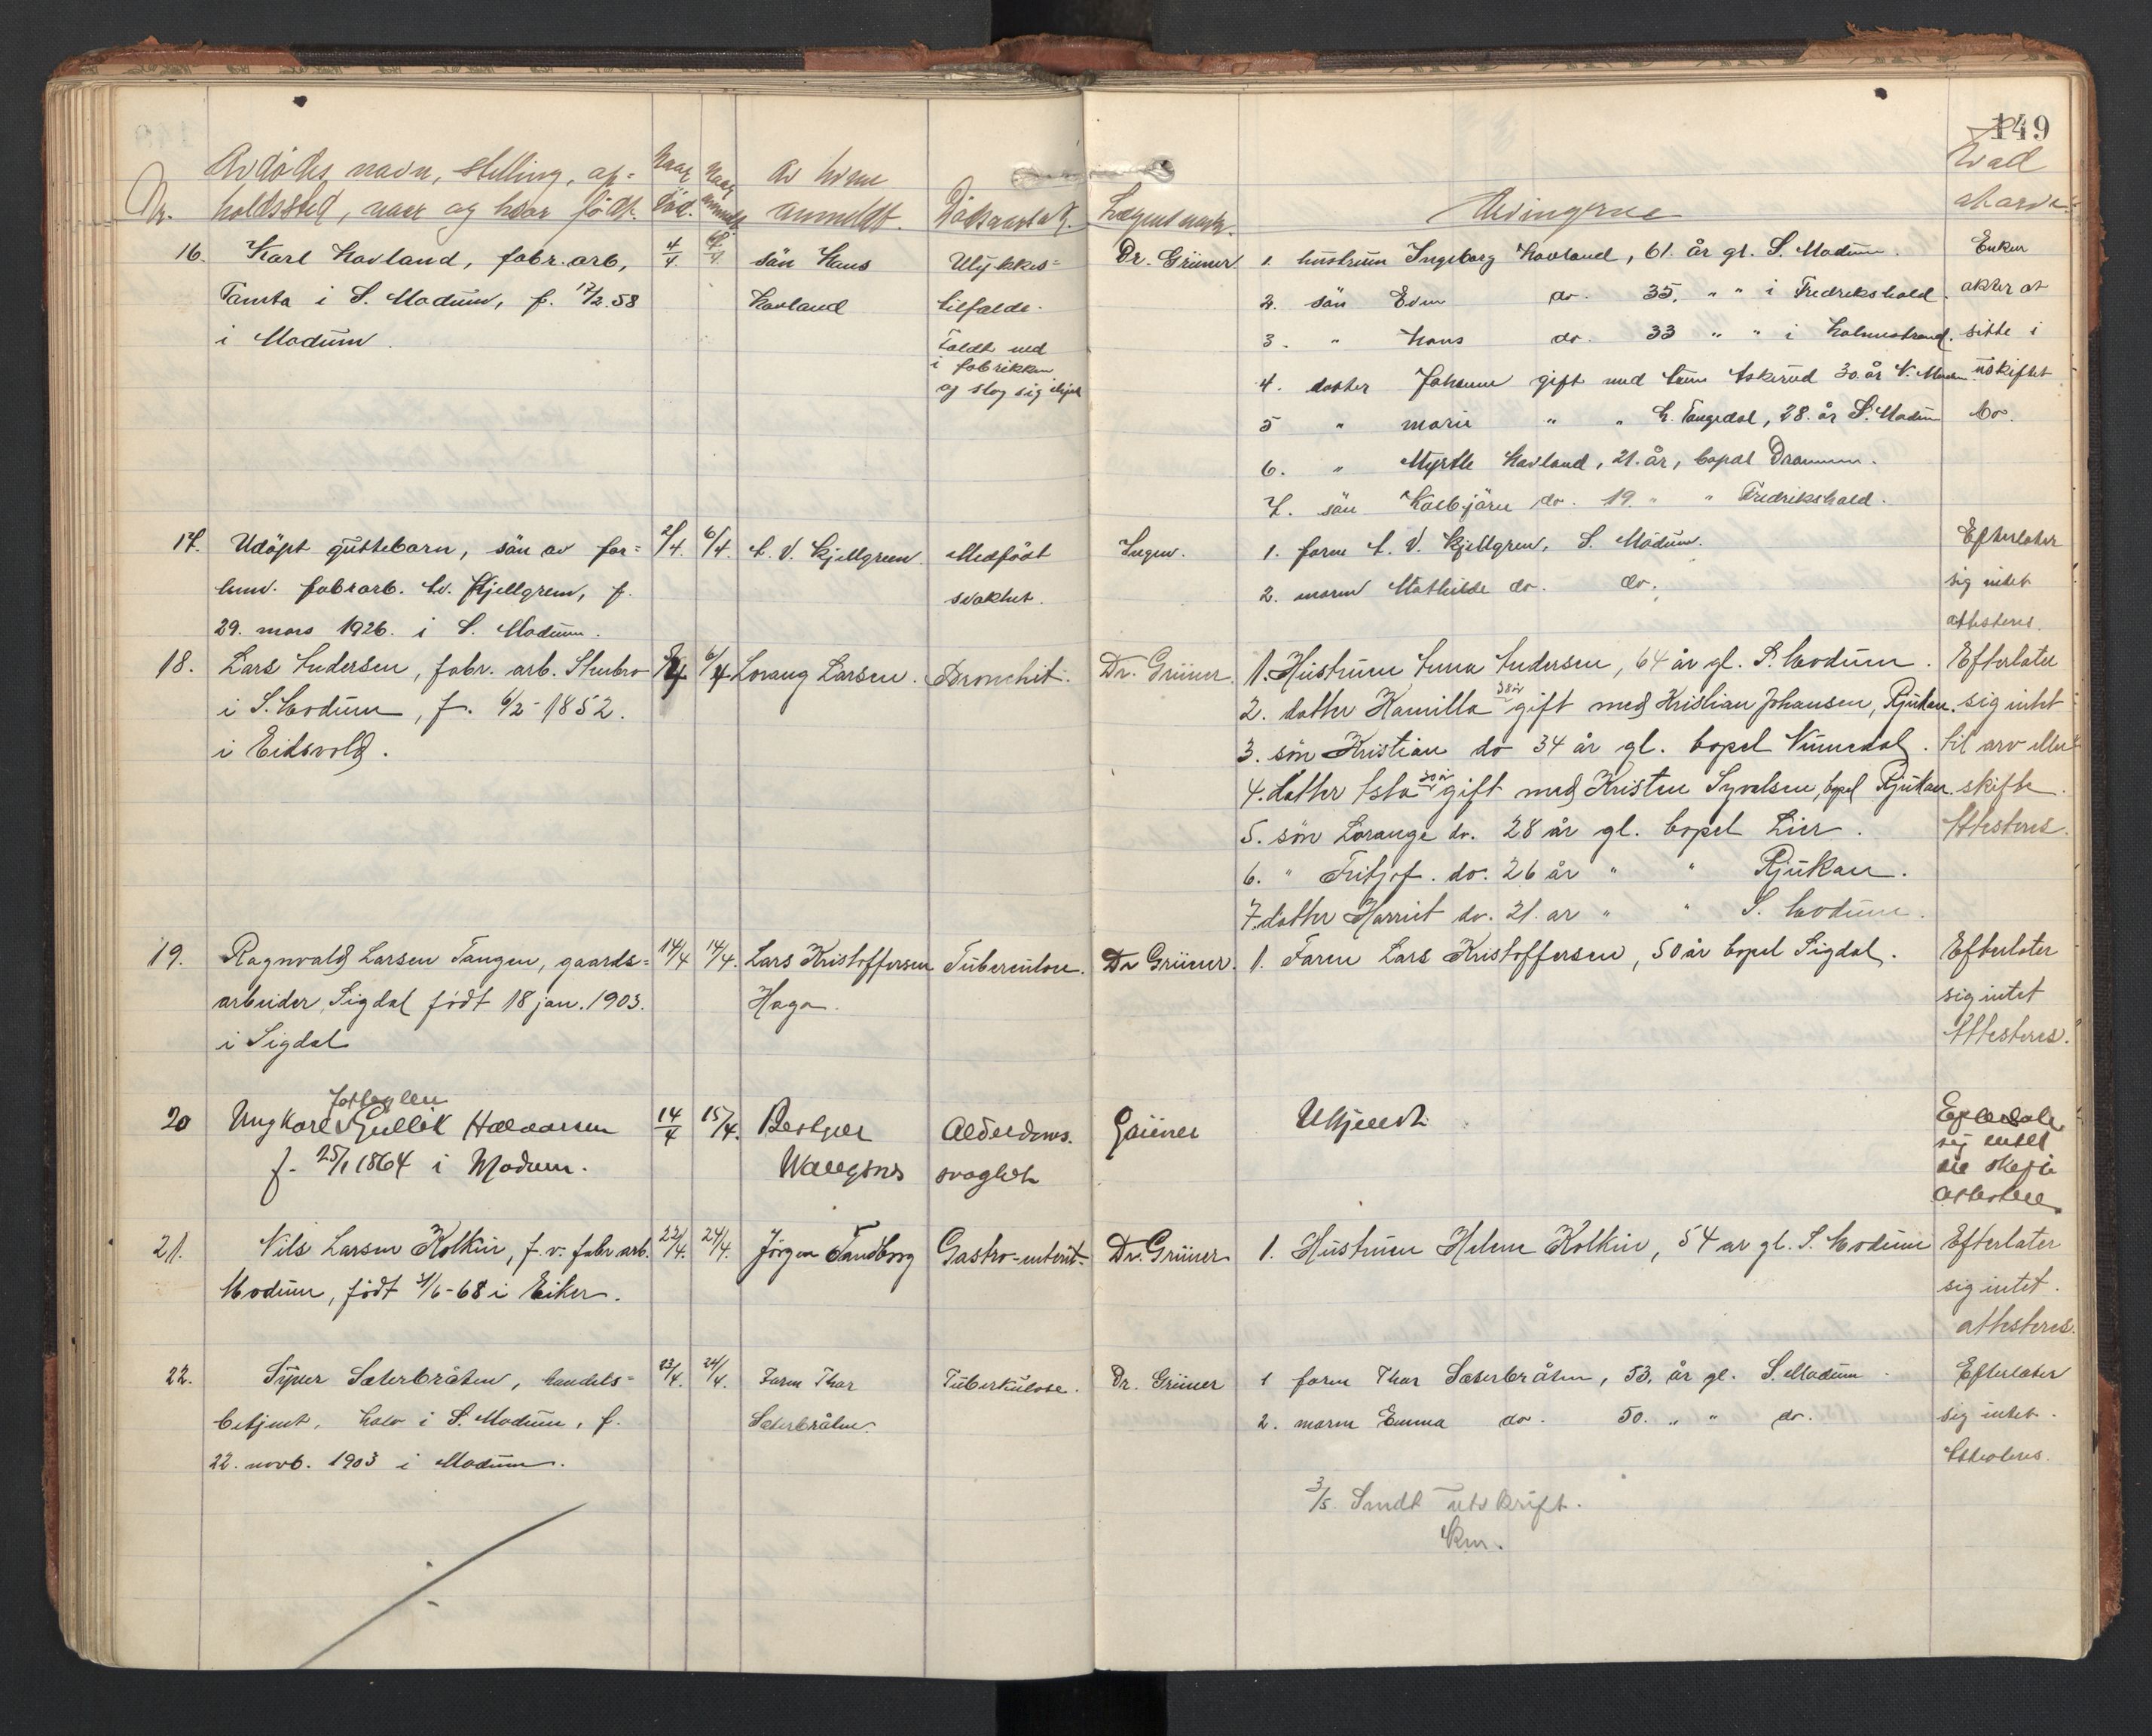 149
Nr. Avdödes navn, stilling, op- Naar Naar Av hvem Dödsaarsak. Lægens navn. Arvingerne Hvad
holdssted, naar og hvor födt. död. anmeldt. anmeldt.
16. Karl Havland, fabr. arb, 4/4 sön Hans Ulykkes= Dr. Grüner 1. hustruen Ingeborg Havland, 61. år gl. S. Modum. Enken
i S. Modum, f. 17/2.58 Havland tilfælde. 2. sön do. 35. " " i Fredrikshald. akter at
i Modum. Faldt ned 3. " Hans do. 33 " " i Holmestrand. sitte i
i fabrikken 4. datter gift med 30. år uskiftet
og slog sig ihjel 5 " marie " " 28. år S. Modum bo.
6. " Myrtle Havland, 21. år, bopæl Drammen.
7. sön Kolbjörn do. 19. " " Fredrikshald.
17. Udöpt guttebarn, sön av for= 2/4. 6/4. A. V. Kjellgren. Medfödt Ingen. 1. faren A. V. Kjellgren, S. Modum. Efterlater
henv. fabrarb. Kjellgren, f. svakhet. 2. moren Mathilde do. do. sig intet
29. mars 1926. i S. Modum. attesteres.
18. Lars Andersen, fabr. arb. Stenbro 6/4 Lorang Larsen. Bronchit. Dr. Grüner 1. Hustruen Anna Andersen, 64 år gl. S. Modum. Efterlater
i S. Modum, f. 6/2-1852. 2. datter Kamilla 38 år gift med Kristian Johansen, Rjukan. sig intet
i Eidsvold. 3. sön Kristian do 34 år gl. bopel Numedal. til arv eller
4. datter Asta 30 år gift med Kristen Syvelsen, bopel Rjukan. skifte.
5. sön Lorange do. 28 år gl. bopel Lier. Attesteres.
6. " Fritjof. do. 26 år " " Rjukan.
7. datter Harriet do. 21. år " " S. Modum.
19. Ragnvald Larsen Tangen, gaards= 14/4 14/4. Lars Kristoffersen Tuberculose. Dr Grüner. 1. Faren Lars Kristoffersen, 50 år bopel Sigdal. Efterlater
arbeider, Sigdal födt 18 jan. 1903. Haga. sig intet
i Sigdal Attesteres.
20 Ungkarl Gullik Halvorsen 14/4 15/4. Bestyrer Alderdoms. Grüner Ukjendt Efterlater
f. 25/1 1864 i Modum. svaghet sig intet
attesteres
21. Nils Larsen Kolkin, f. v. fabr arb. 22/4. 24/4. Jörgen Sandborg Gastro-enterit. Dr. Grüner 1. Hustruen Helene Kolkin, 54 år gl. S. Modum Efterlater
Modum, födt 4/6-68 i Eiker. sig intet.
attesteres.
22. Syver Sæterbråten, handels= 23/4. 24/4. Faren Thor Tuberkulose. Dr. Grüner 1 faren Thor Sæterbråten, 53. år gl. S. Modum. Efterlater
betjent, i S. Modum, f. Sæterbråten. 2. moren Emma do. 50. " " do. sig intet.
22. novb. 1903 i Modum. Attesteres.
3/5. Sendt utskrift.